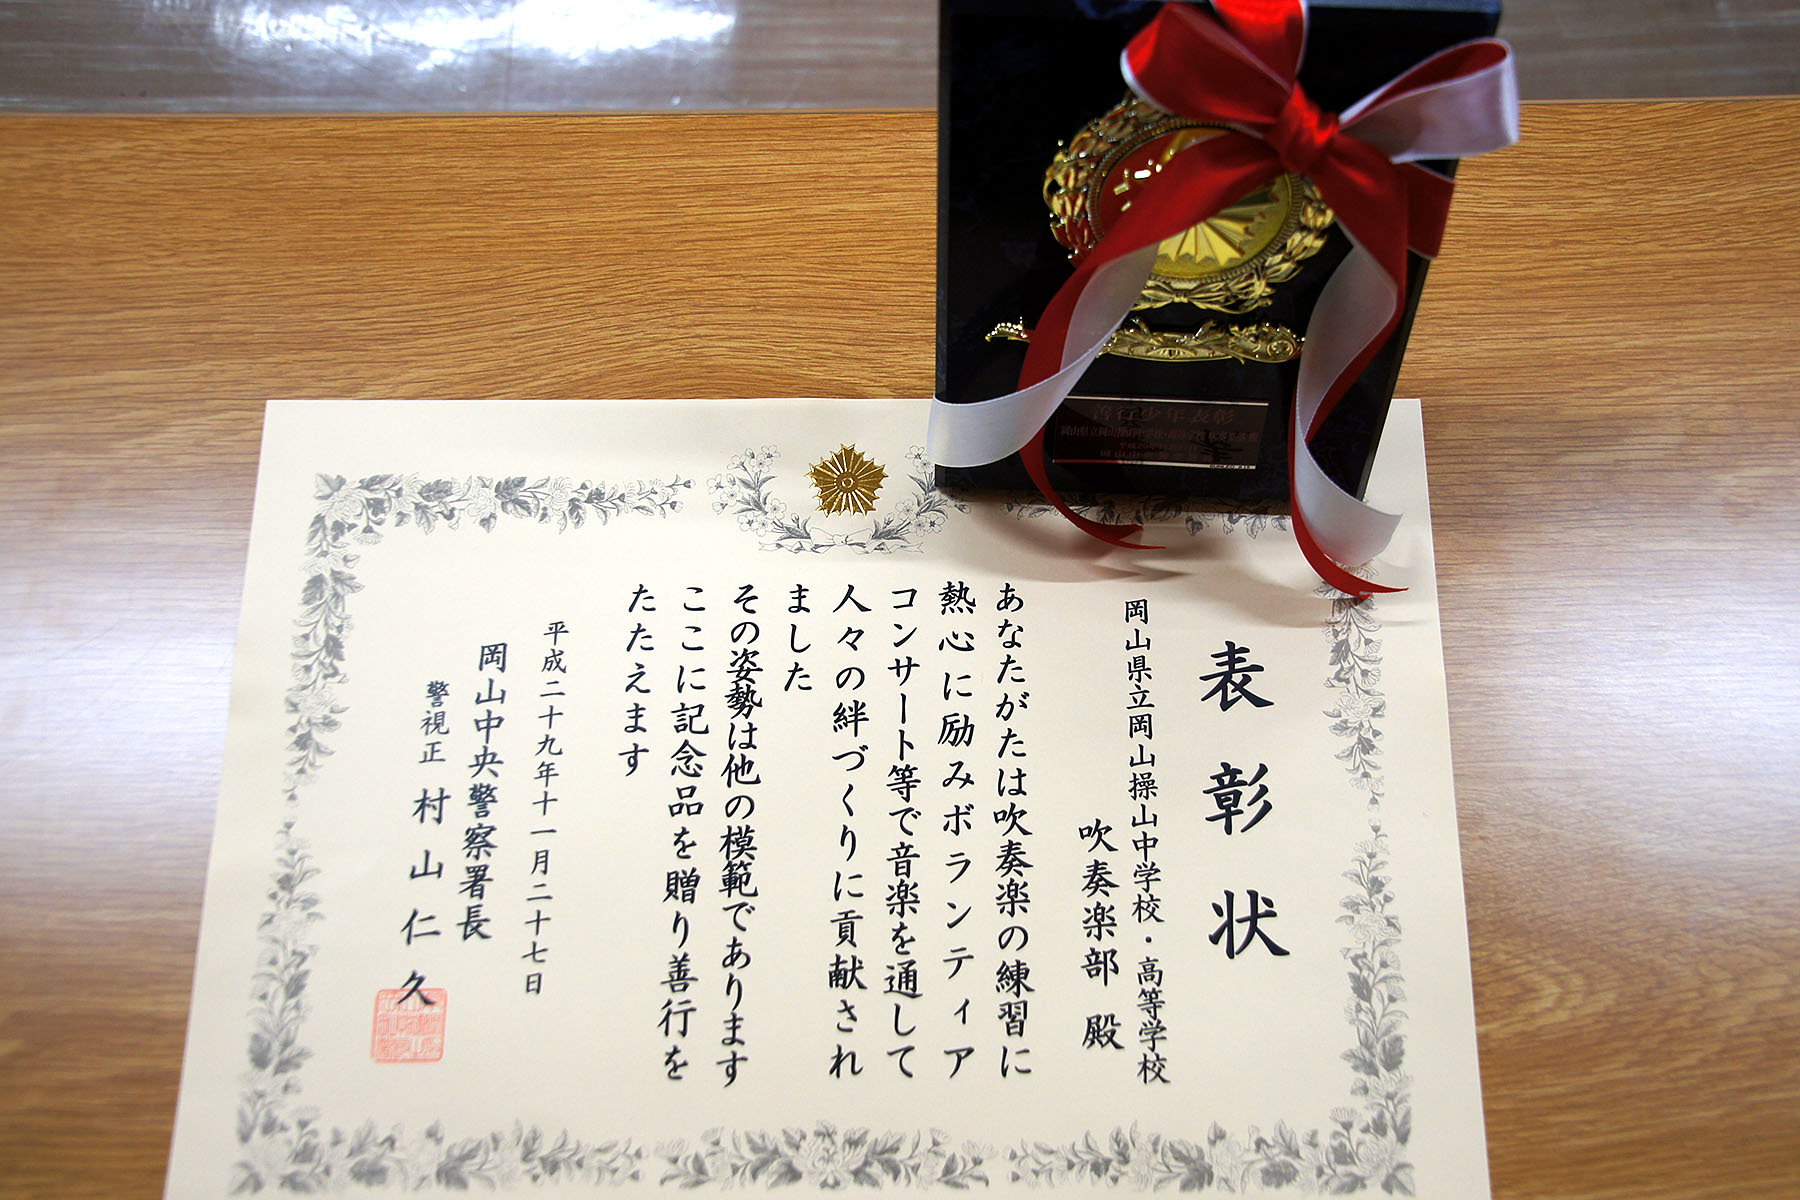 表彰状
岡山県立岡山操山中学校・高等学校
吹奏楽部 殿
あなたがたは吹奏楽の練習に
熱心に励みボランティア
コンサート等で音楽を通して
人々の絆づくりに貢献され
ました
その姿勢は他の模範であります
ここに記念品を贈り善行を
たたえます
平成二十九年十一月二十七日
岡山中央警察署長
警視正 村山仁久
善行少年表彰